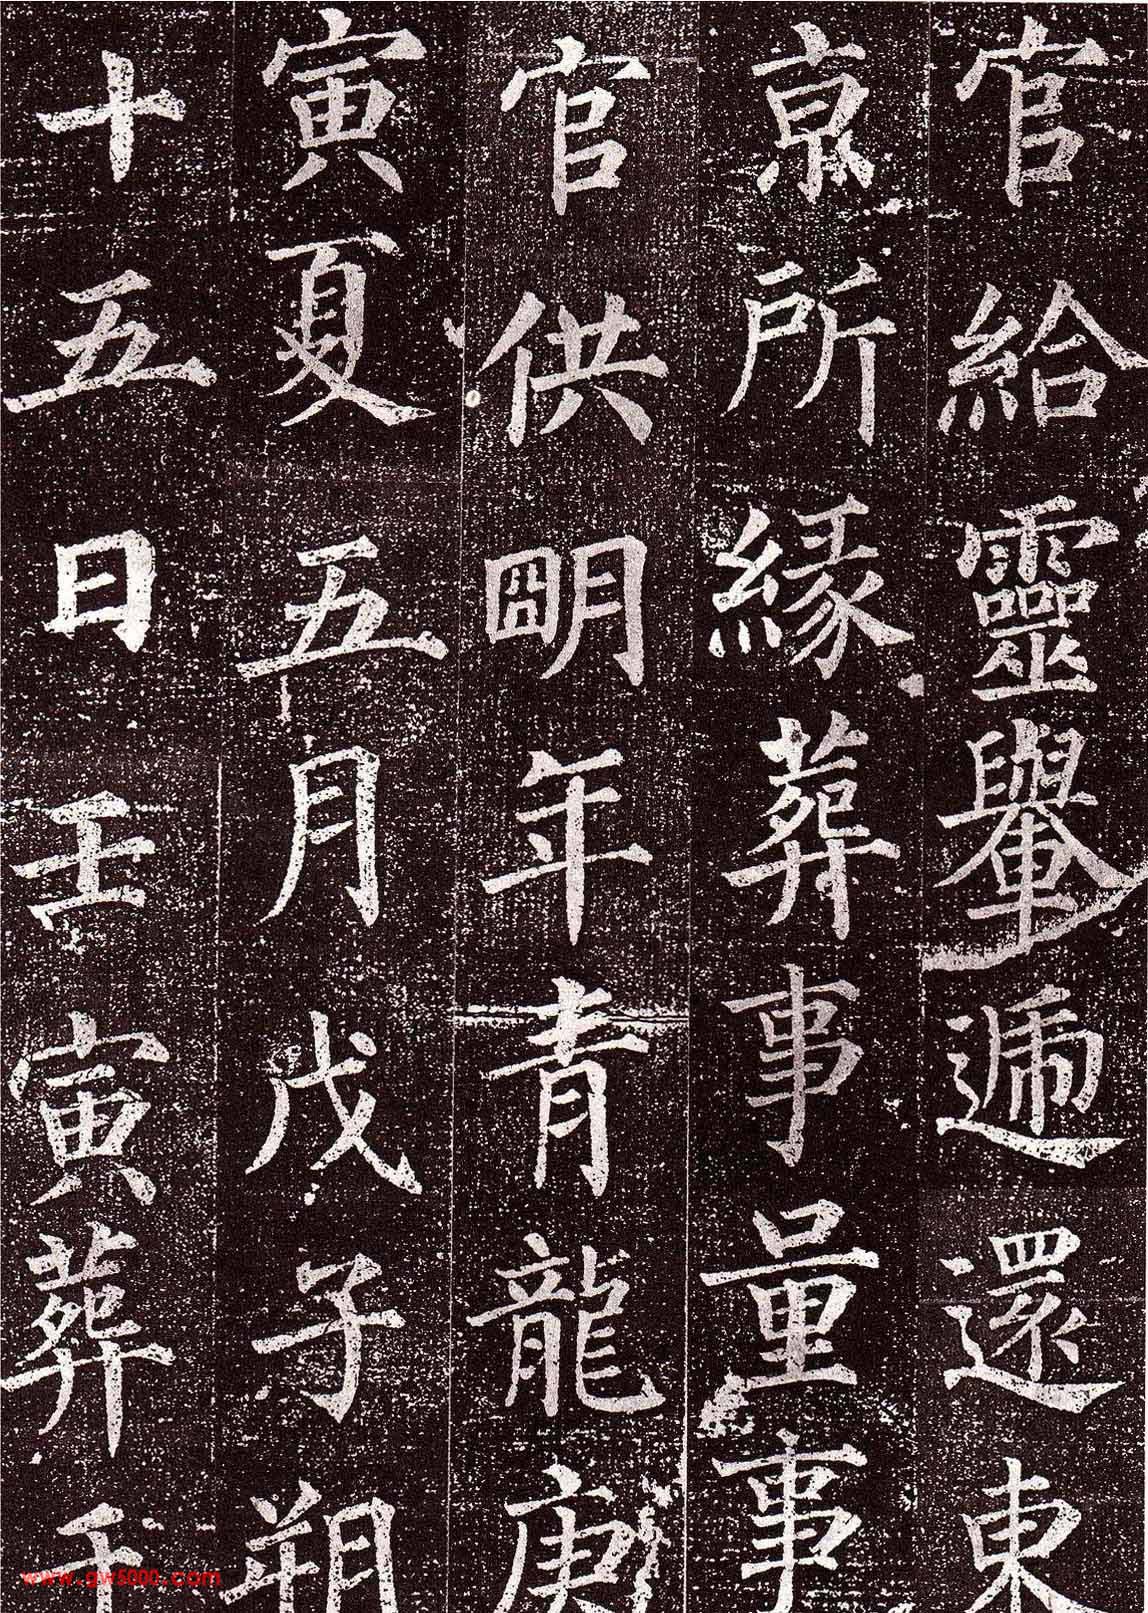 官給靈轝遞還東
京所緣葬事量事
官供明年青龍庚
寅夏五月戊子朔
十五日壬寅葬于
www.gw5000.com